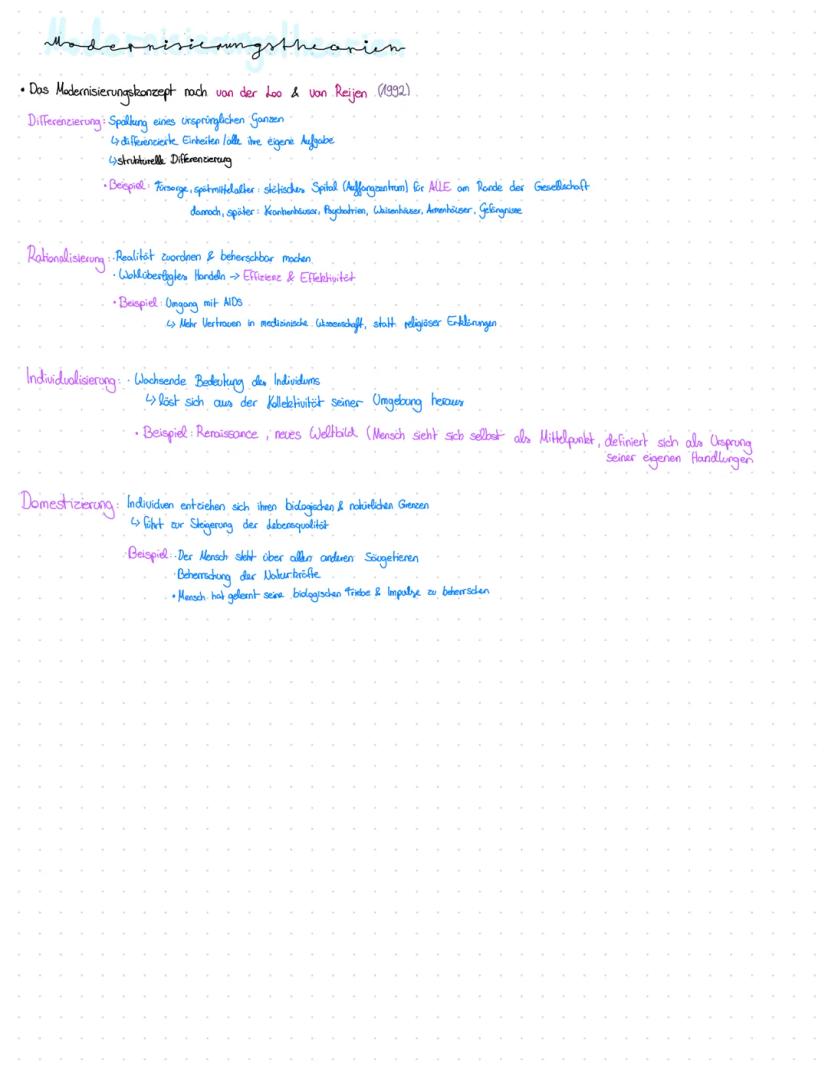 Modernisierungstheorien
• Das Modernisierungskonzept nach van der Loo & van Reijen (1992)
Differenzierung: Spaltung eines ursprünglichen Ganzen
↳ differenzierte Einheiten / alle ihre eigene Aufgabe
↳ strukturelle Differenzierung
• Beispiel: Fürsorge, spätmittelalter: städtisches Spital (Auffangzentrum) für ALLE am Rande der Gesellschaft
danach, später: Krankenhäuser, Psychatrien, Waisenhäuser, Armenhäuser, Gefängnisse
Rationalisierung: • Realität zuordnen & beherschbar machen
• Wohlüberlegtes Handeln → Effizienz & Effektivität
• Beispiel: Umgang mit AIDS
↳ Mehr Vertrauen in medizinische Wissenschaft, statt religiöser Erklärungen
Individualisierung: • Wachsende Bedeutung des Individums
↳ löst sich aus der Kollektivität seiner Umgebung heraus
• Beispiel: Renaissance, neues Weltbild (Mensch sieht sich selbst als Mittelpunkt, definiert sich als Ursprung
seiner eigenen Handlungen
Domestizierung: Individuen entziehen sich ihren biologischen & natürlichen Grenzen
↳ führt zur Steigerung der Lebensqualität
Beispiel: • Der Mensch steht über allen anderen Säugetieren
• Beherrschung der Naturkräfte
• Mensch hat gelernt seine biologischen Triebe & Impulse zu beherrschen